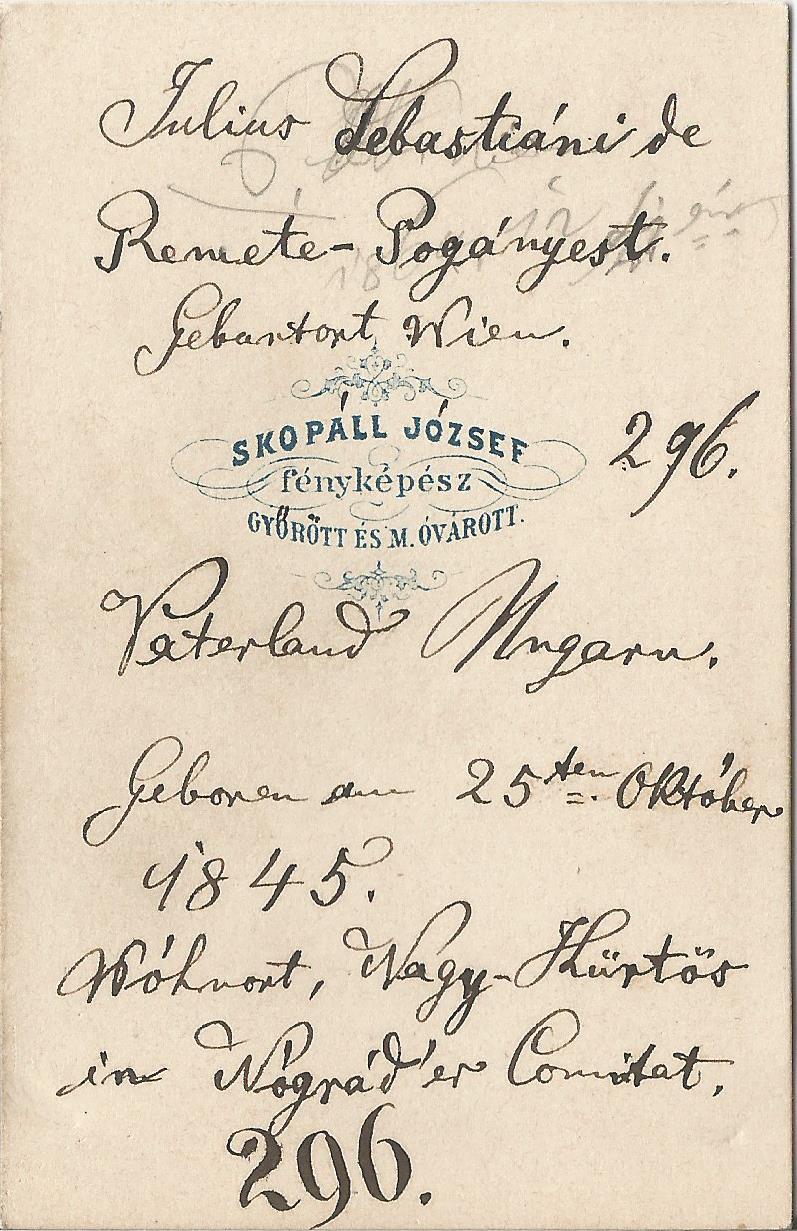 Julius Sebastiáni de
Remete-Pogányest.
Gebartort, Wien.
SKOPÁLL JÓZSEF
296.
fényképész
GYŐRÖTT ÉS M. ÓVÁROTT.
Vaterland Ungarn.
Geboren am 25ten Október
1845.
Wóhnort, Nagy-Kürtös
in Nógrád'er Comitat.
296.